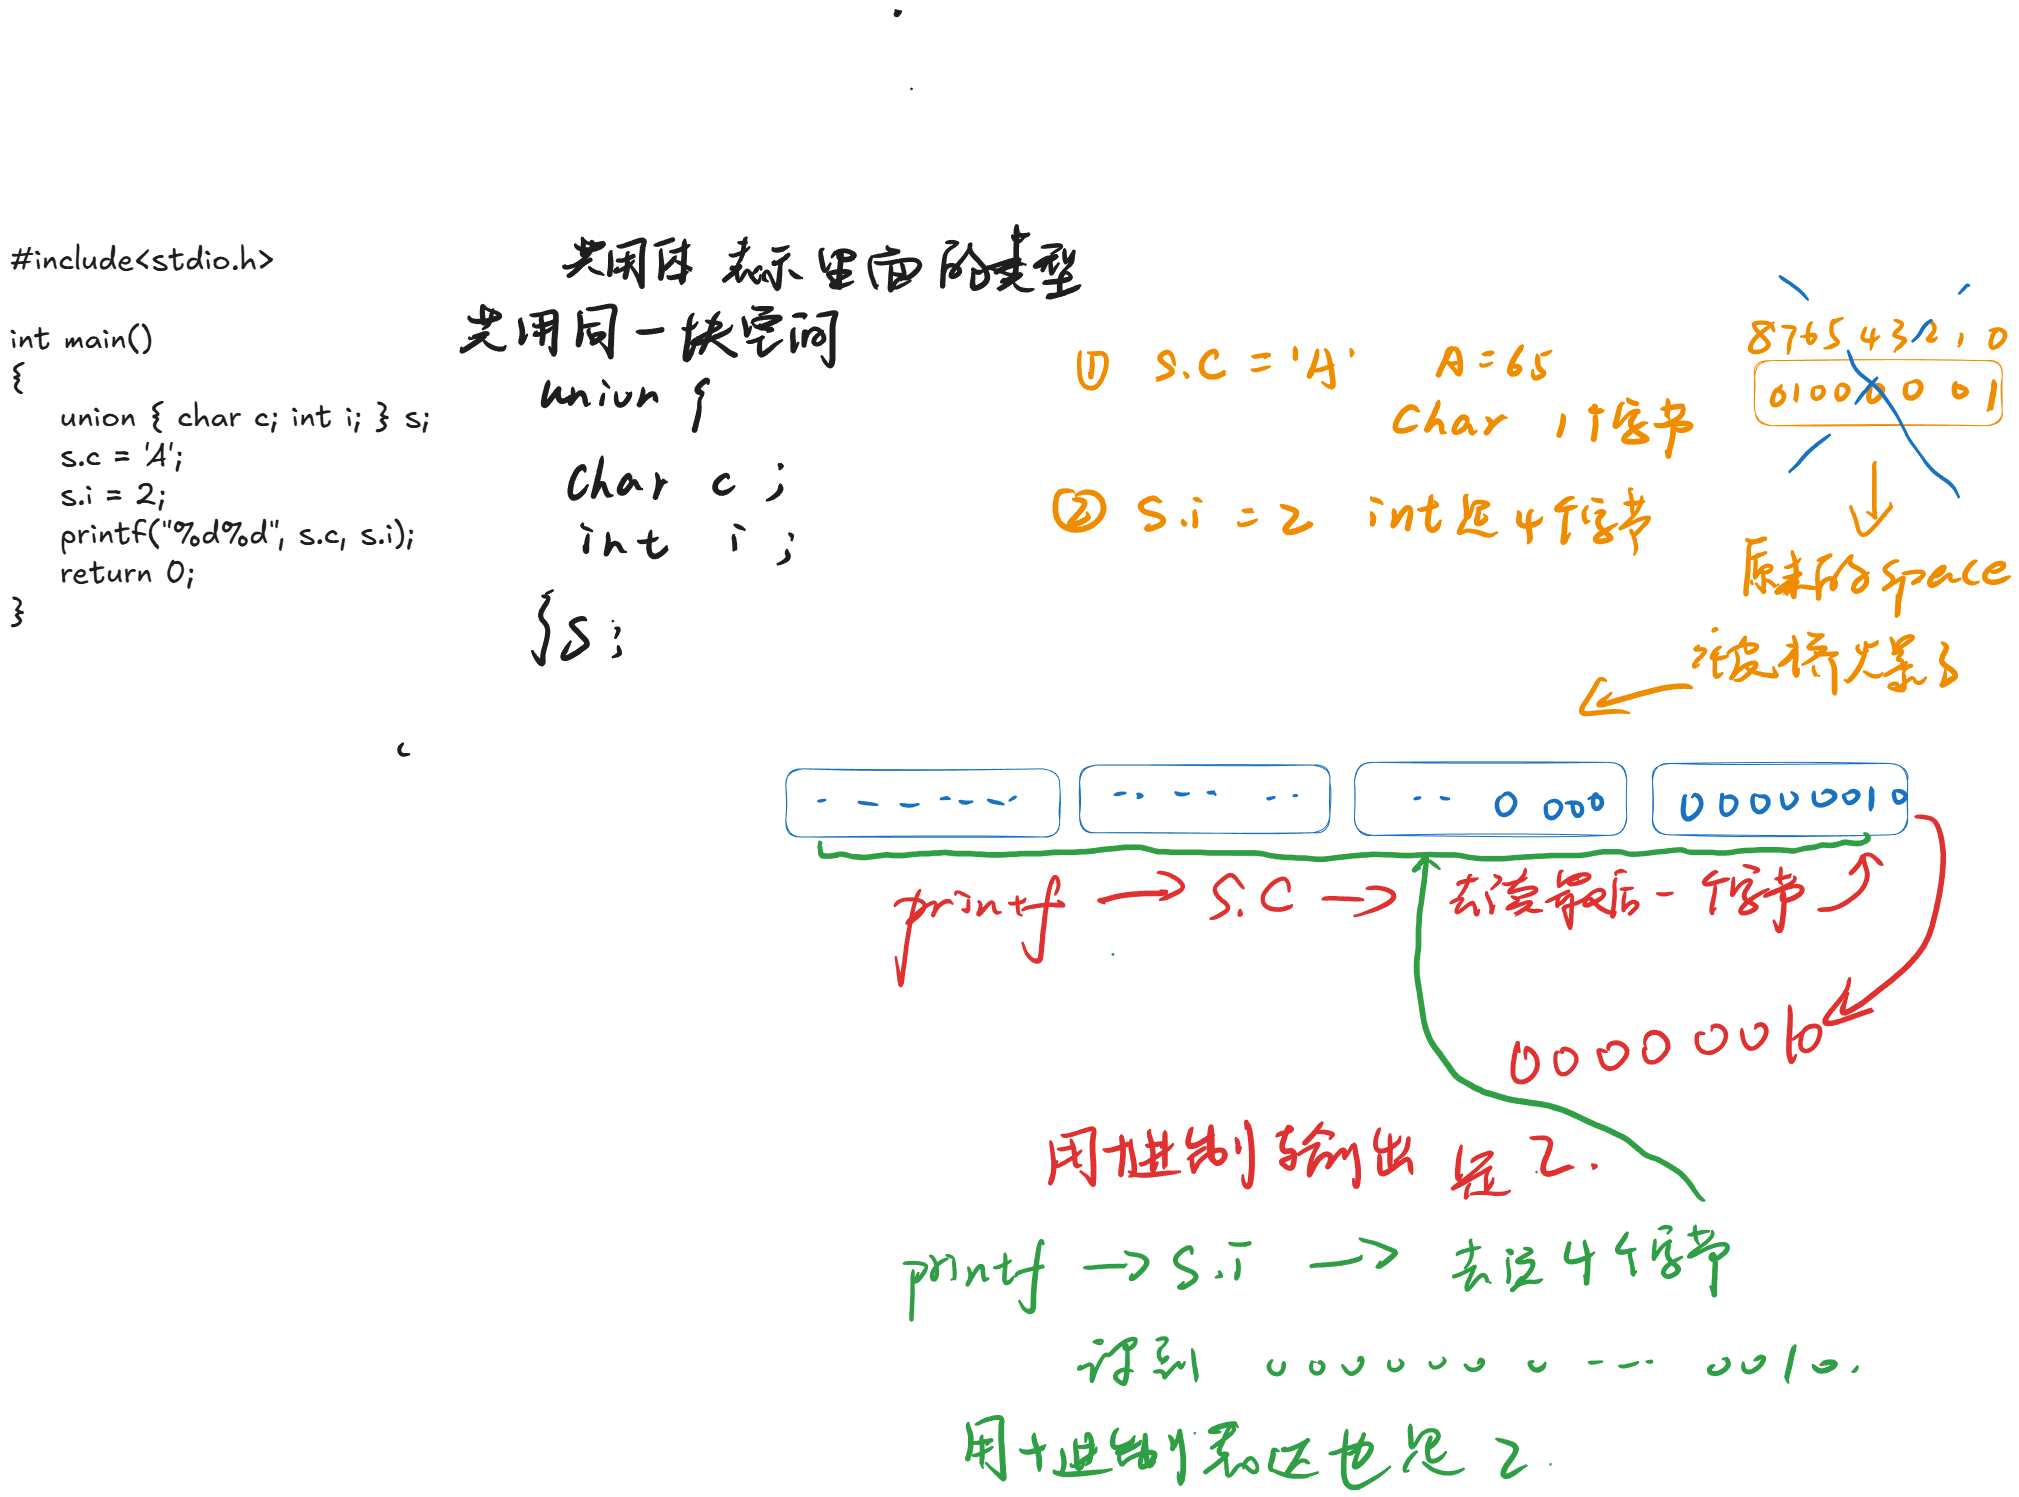 #include<stdio.h>
int main()
{
union { char c; int i; } s;
s.c = 'A';
s.i = 2;
printf("%d%d", s.c, s.i);
return 0;
}
共用体 表示里面的类型
共用同一块空间
union {
char c ;
int i ;
}s ;
① s.c = 'A' A=65
char 1个字节
② s.i = 2 int是4个字节
876543210
01000001
原来的space
被挤爆了
0 000
00000010
printf → s.c → 去读最后一个字节
00000010
用十进制输出是2.
printf → s.i → 去这4个字节
得到 0000000---0010.
用十进制表达也是2.